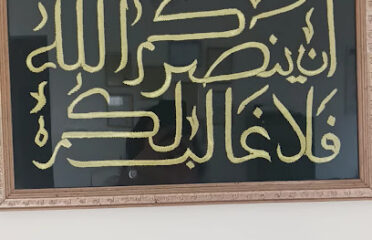 ان ينصركم الله
فلا غالب لكم